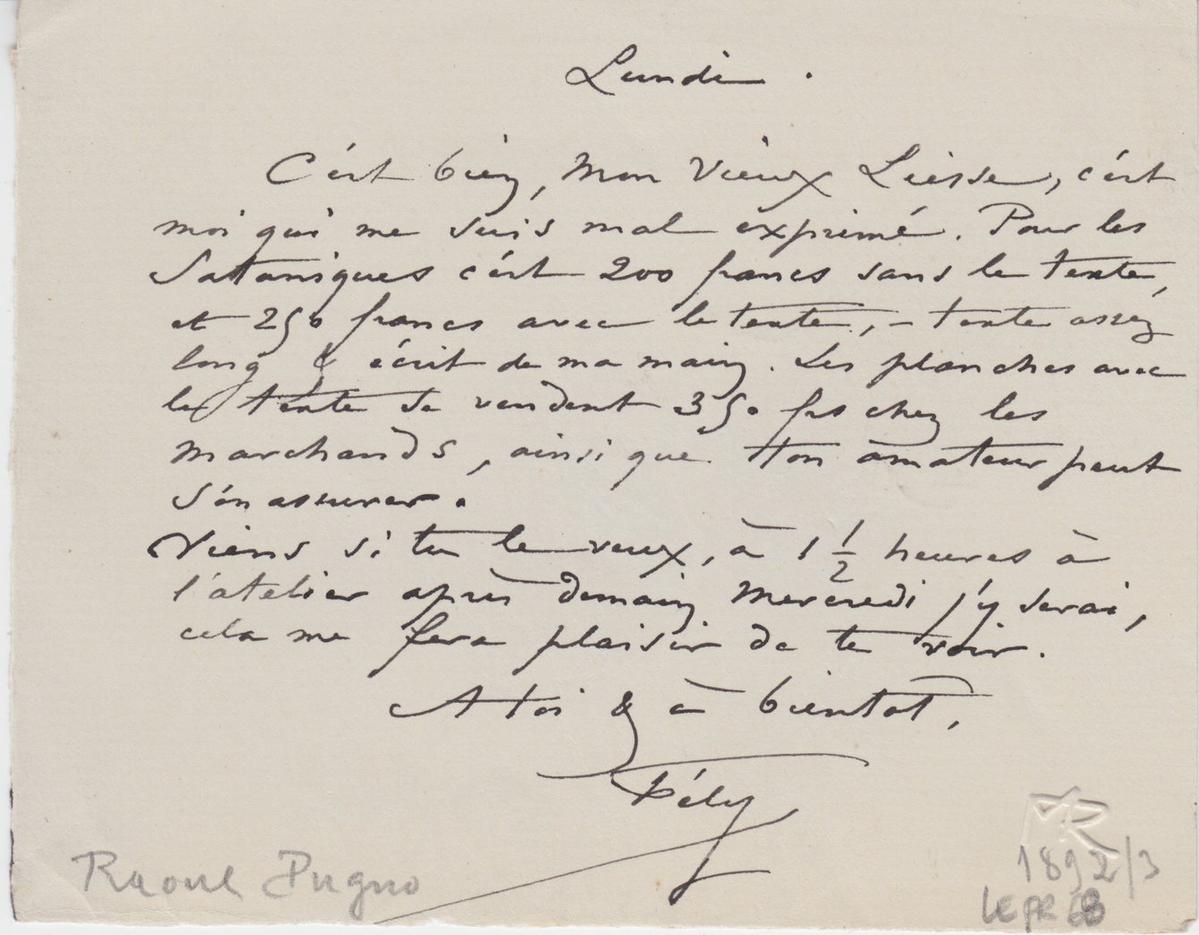 Lundi.
C'est bien, mon vieux Liesse, c'est
moi qui me suis mal exprimé. Pour les
Sataniques c'est 200 francs sans le texte,
et 250 francs avec le texte, – texte assez
long & écrit de ma main. Les planches avec
le texte se vendent 350 frs chez les
marchands, ainsi que ton amateur peut
s'en assurer.
Viens si tu le veux, à 1 1/2 heures à
l'atelier après demain Mercredi j'y serai,
cela me fera plaisir de te voir.
A toi & à bientot,
Fély
MR
Raoul Pugno
1892/3
LEPR 68